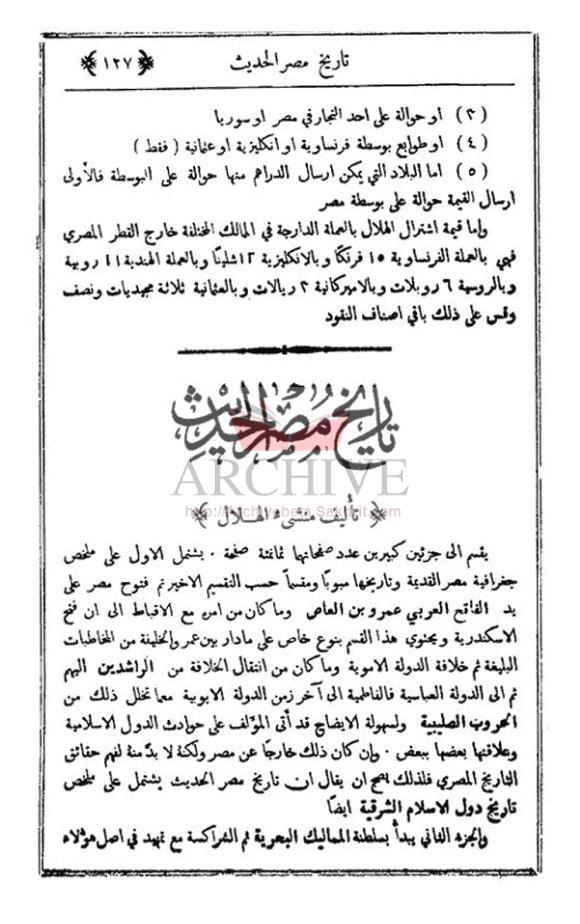 تاريخ مصر الحديث ﴿ ١٢٧ ﴾
(٣) او حوالة على احد التجار في مصر او سوريا
(٤) او طوابع بوسطة فرنساوية او انكليزية او عثمانية ( فقط )
(٥) اما البلاد التي يمكن ارسال الدراهم منها حوالة على البوسطة فالأولى
ارسال القيمة حوالة على بوسطة مصر
واما قيمة اشتراك الهلال بالعملة الدارجة في المالك المختلفة خارج القطر المصري
فهي بالعملة الفرنساوية ١٥ فرنكًا وبالانكليزية ١٢ شلينًا وبالعملة الهندية ١١ روبية
وبالروسية ٦ روبلات وبالاميركانية ٣ ريالات وبالعثمانية ثلاثة مجيديات ونصف
وقس على ذلك باقي اصناف النقود
تاريخ مصر الحديث
ARCHIVE
http://Archivebeta.Sakhrit.com
﴿ تأليف منشىء الهلال ﴾
يقسم الى جزئين كبيرين عدد صفحاتها ثمانمئة صفحة . يشتمل الاول على ملخص
جغرافية مصر القديمة وتاريخها مبوبًا ومقسمًا حسب التقسيم الاخير ثم فتوح مصر على
يد الفاتح العربي عمرو بن العاص وما كان من امره مع الاقباط الى ان فتح
الاسكندرية ويحتوي هذا القسم بنوع خاص على ما دار بين عمر والخليفة من المخاطبات
البليغة ثم خلافة الدولة الاموية وما كان من انتقال الخلافة من الراشدين اليهم
ثم الى الدولة العباسية فالفاطمية الى آخر زمن الدولة الايوبية مما تخلل ذلك من
الحروب الصليبية ولسهولة الايضاح قد أتى المؤلف على حوادث الدول الاسلامية
وعلاقتها بعضها ببعض . وإن كان ذلك خارجًا عن مصر ولكنهُ لا بدَّ منهُ لفهم حقائق
التاريخ المصري فلذلك يصح ان يقال ان تاريخ مصر الحديث يشتمل على ملخص
تاريخ دول الاسلام الشرقية ايضًا
والجزء الثاني يبدأ بسلطنة المماليك البحرية ثم الشراكسة مع تمهيد في اصل هؤلاء